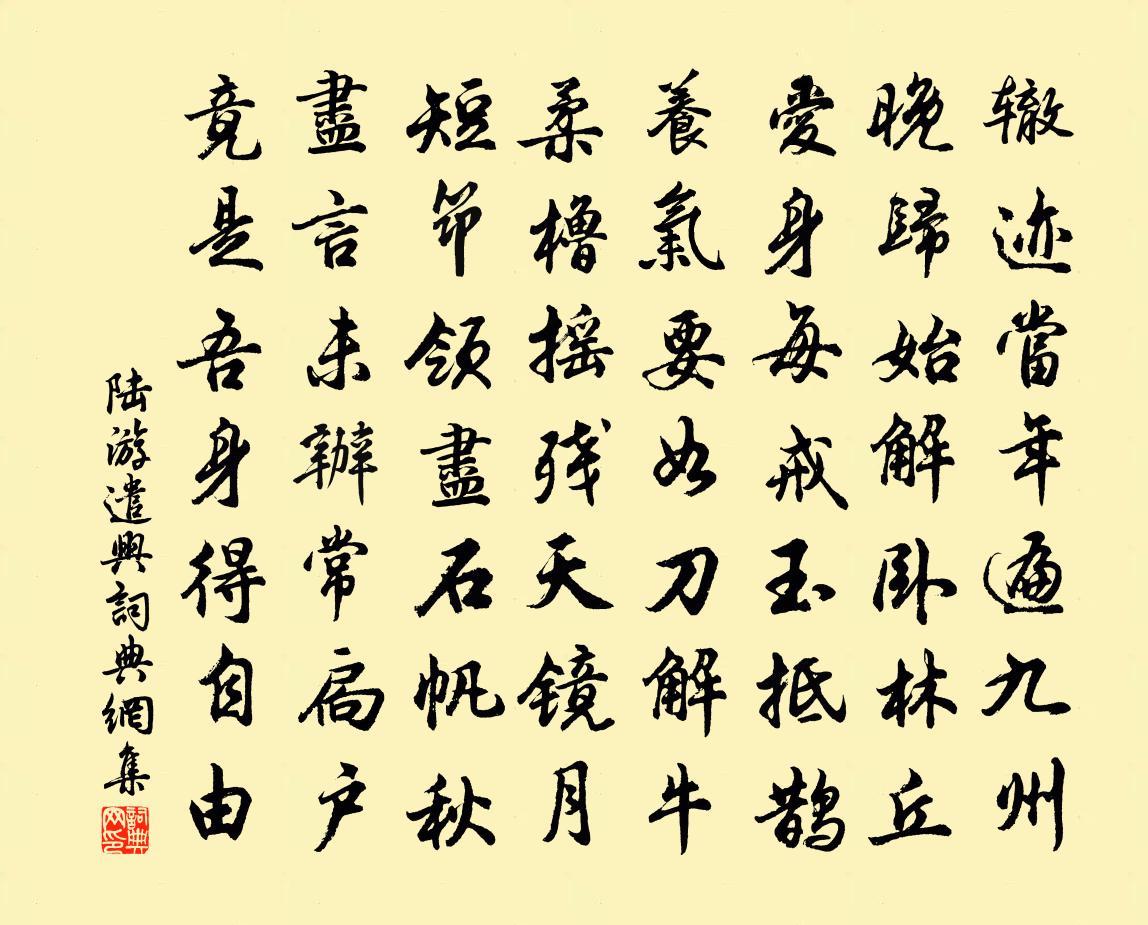 辙迹當年遍九州
晚歸始解卧林丘
愛身每戒玉抵鹊
養氣要如刀解牛
柔櫓摇残天镜月
短筇領盡石帆秋
盡言未辦常扃户
竟是吾身得自由
陆游遣興詞典網集
詞典网印